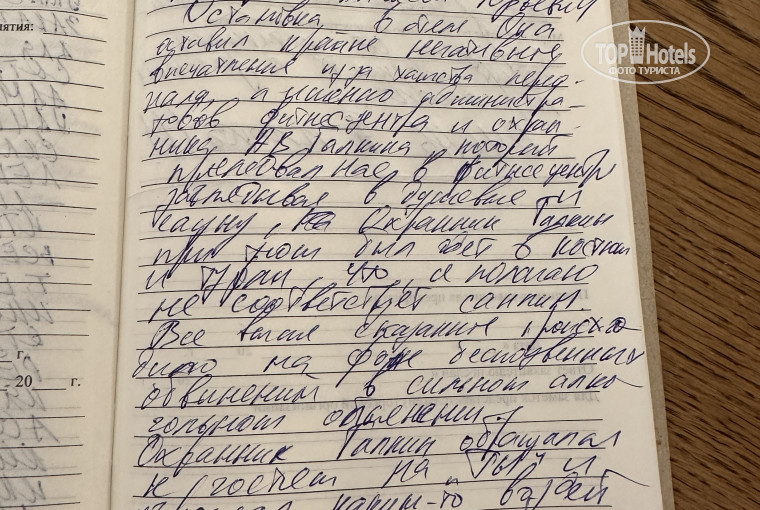 Остановка в отеле Она
оставил крайне негативные
впечатления из-за хамства перс-
нала, а именно администра-
торов фитнесцентра и охран-
ника. Галкина, который
преследовал нас в фитнесцентре
заглядывая в душевые и
сауну, Охранник Галкин
при этом был одет в костюм
и туфли, что я полагаю
не соответствует санпин.
Все выше сказанное происхо-
дило на фоне беспочвенных
обвинений в сильном алко-
гольном опьянении.
Охранник Галкин обращался
к гостям на "Ты" и
каким-то
нятия:
г.
20 г.
TOP Hotels
ФОТО ТУРИСТА